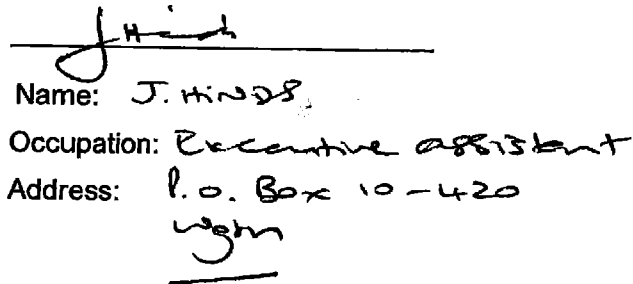 J Hinds
Name: J. HINDS.
Occupation: Executive assistant
Address: P.O. Box 10-420
Wgtn